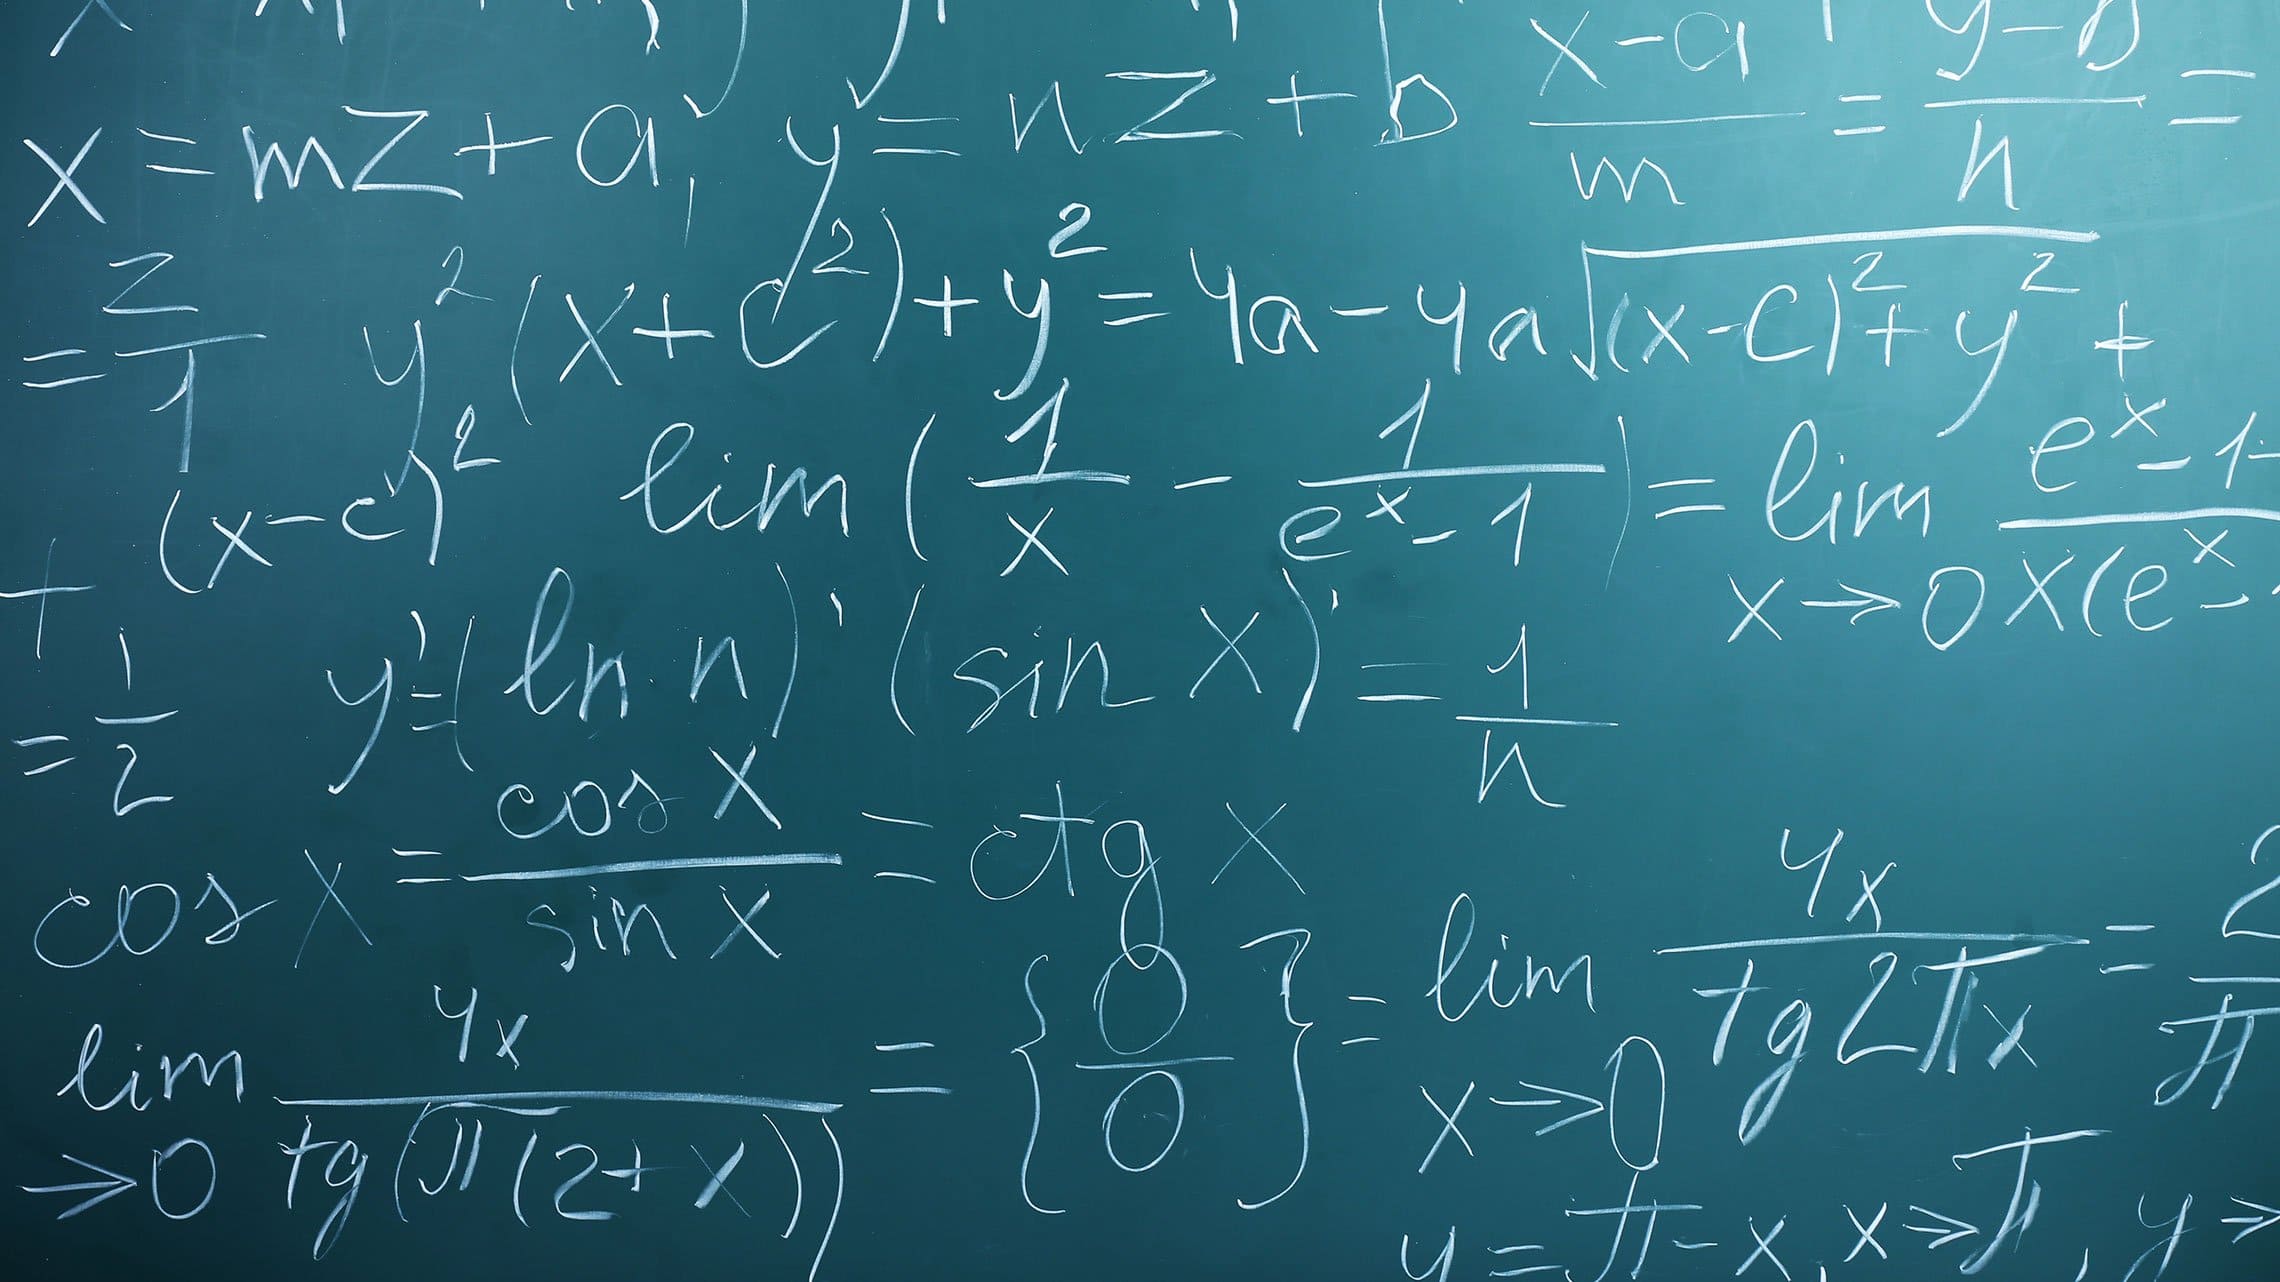 x = mz + a, y = nz + b (x-a)/m = (y-b)/n =
= z/1 y² (x+c²) + y² = 4a - 4a√((x-c)² + y²) +
+ (x-c)² lim (1/x - 1/(e^x - 1)) = lim x→0 (e^x - 1 -)/(x(e^x -
= 1/2 y' = (ln n)' (sin x)' = 1/n
cos x = cos x / sin x = ctg x
lim →0 4x / tg(π(2+x)) = {0/0} = lim x→0 4x / tg2πx = 2/π
y = π - x, x → π, y →